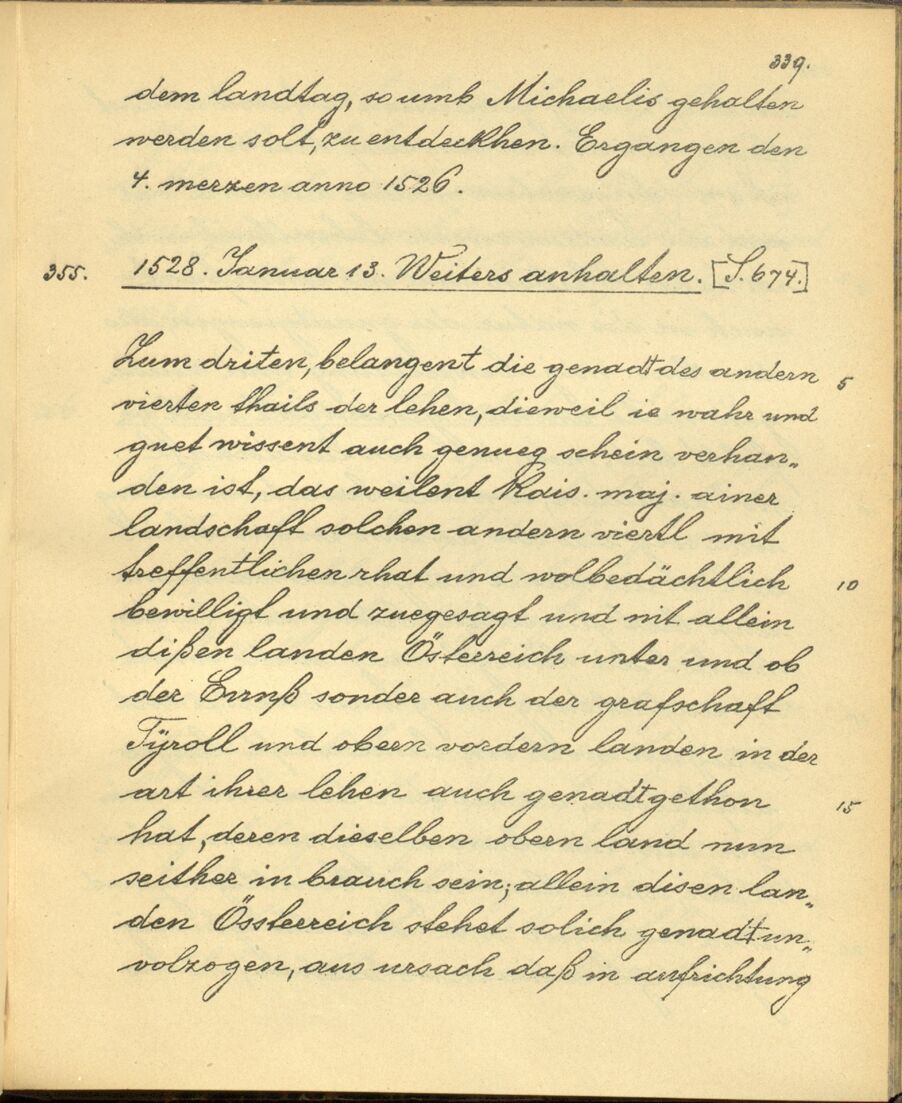 339.
dem landtag, so umb Michaelis gehalten
werden solt, zu entdeckhen. Ergangen den
4. merzen anno 1526.
355. 1528. Januar 13. Weiters anhalten. [S. 674.]
Zum driten, belangent die genadt des andern 5
vierten thails der lehen, dieweil ie wahr und
guet wissent auch genueg schein verhan„
den ist, das weilent Kais. maj. ainer
landschaft solchen andern viertl mit
treffentlichen rhat und wolbedächtlich 10
bewilligt und zuegesagt und nit allein
dißen landen Österreich unter und ob
der Ennß sonder auch der grafschaft
Tÿroll und obern vordern landen in der
art ihrer lehen auch genadt gethon 15
hat, deren dieselben obern land nun
seither in brauch sein; allein disen lan„
den Össterreich stehet solich genadt un„
volzogen, aus ursach daß in aufrichtung